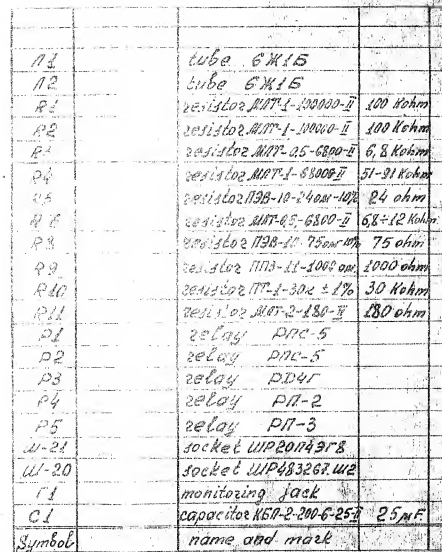 Л1 tube 6Ж1Б
Л2 tube 6Ж1Б
R1 resistor МЛТ-1-100000-II 100 Kohm
R2 resistor МЛТ-1-100000-II 100 Kohm
R3 resistor МЛТ-0,5-6800-II 6,8 Kohm
R4 resistor МЛТ-1-68000-II 51-91 Kohm
R5 resistor ПЭВ-10-24ом-10% 24 ohm
R6 resistor МЛТ-0,5-6800-II 6,8÷12 Kohm
R8 resistor ПЭВ-10-75ом-10% 75 ohm
R9 resistor ПП3-11-1000 ом 1000 ohm
R10 resistor ПТ-1-30к ±1% 30 Kohm
R11 resistor МЛТ-2-180-II 180 ohm
P1 relay РПС-5
P2 relay РПС-5
P3 relay РD4Г
P4 relay РП-2
P5 relay РП-3
Ш-21 socket ШР20П4ЭГ8
Ш-20 socket
Г1 monitoring jack
C1 capacitor КБП-2-200-6-25-II 25 μF
Symbol name and mark